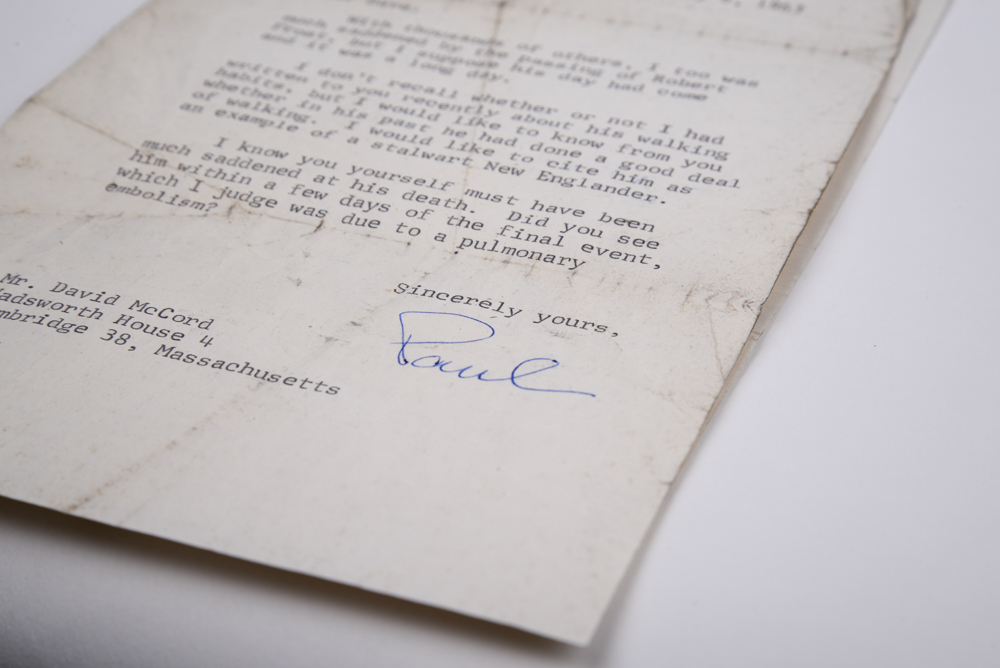 1963
With thousands of others, I too was
much saddened by the passing of Robert
Frost, but I suppose his day had come
and it was a long day.
I don't recall whether or not I had
written to you recently about his walking
habits, but I would like to know from you
whether in his past he had done a good deal
of walking. I would like to cite him as
an example of a stalwart New Englander.
I know you yourself must have been
much saddened at his death. Did you see
him within a few days of the final event,
which I judge was due to a pulmonary
embolism?
Sincerely yours,
Paul
Mr. David McCord
adsworth House 4
mbridge 38, Massachusetts